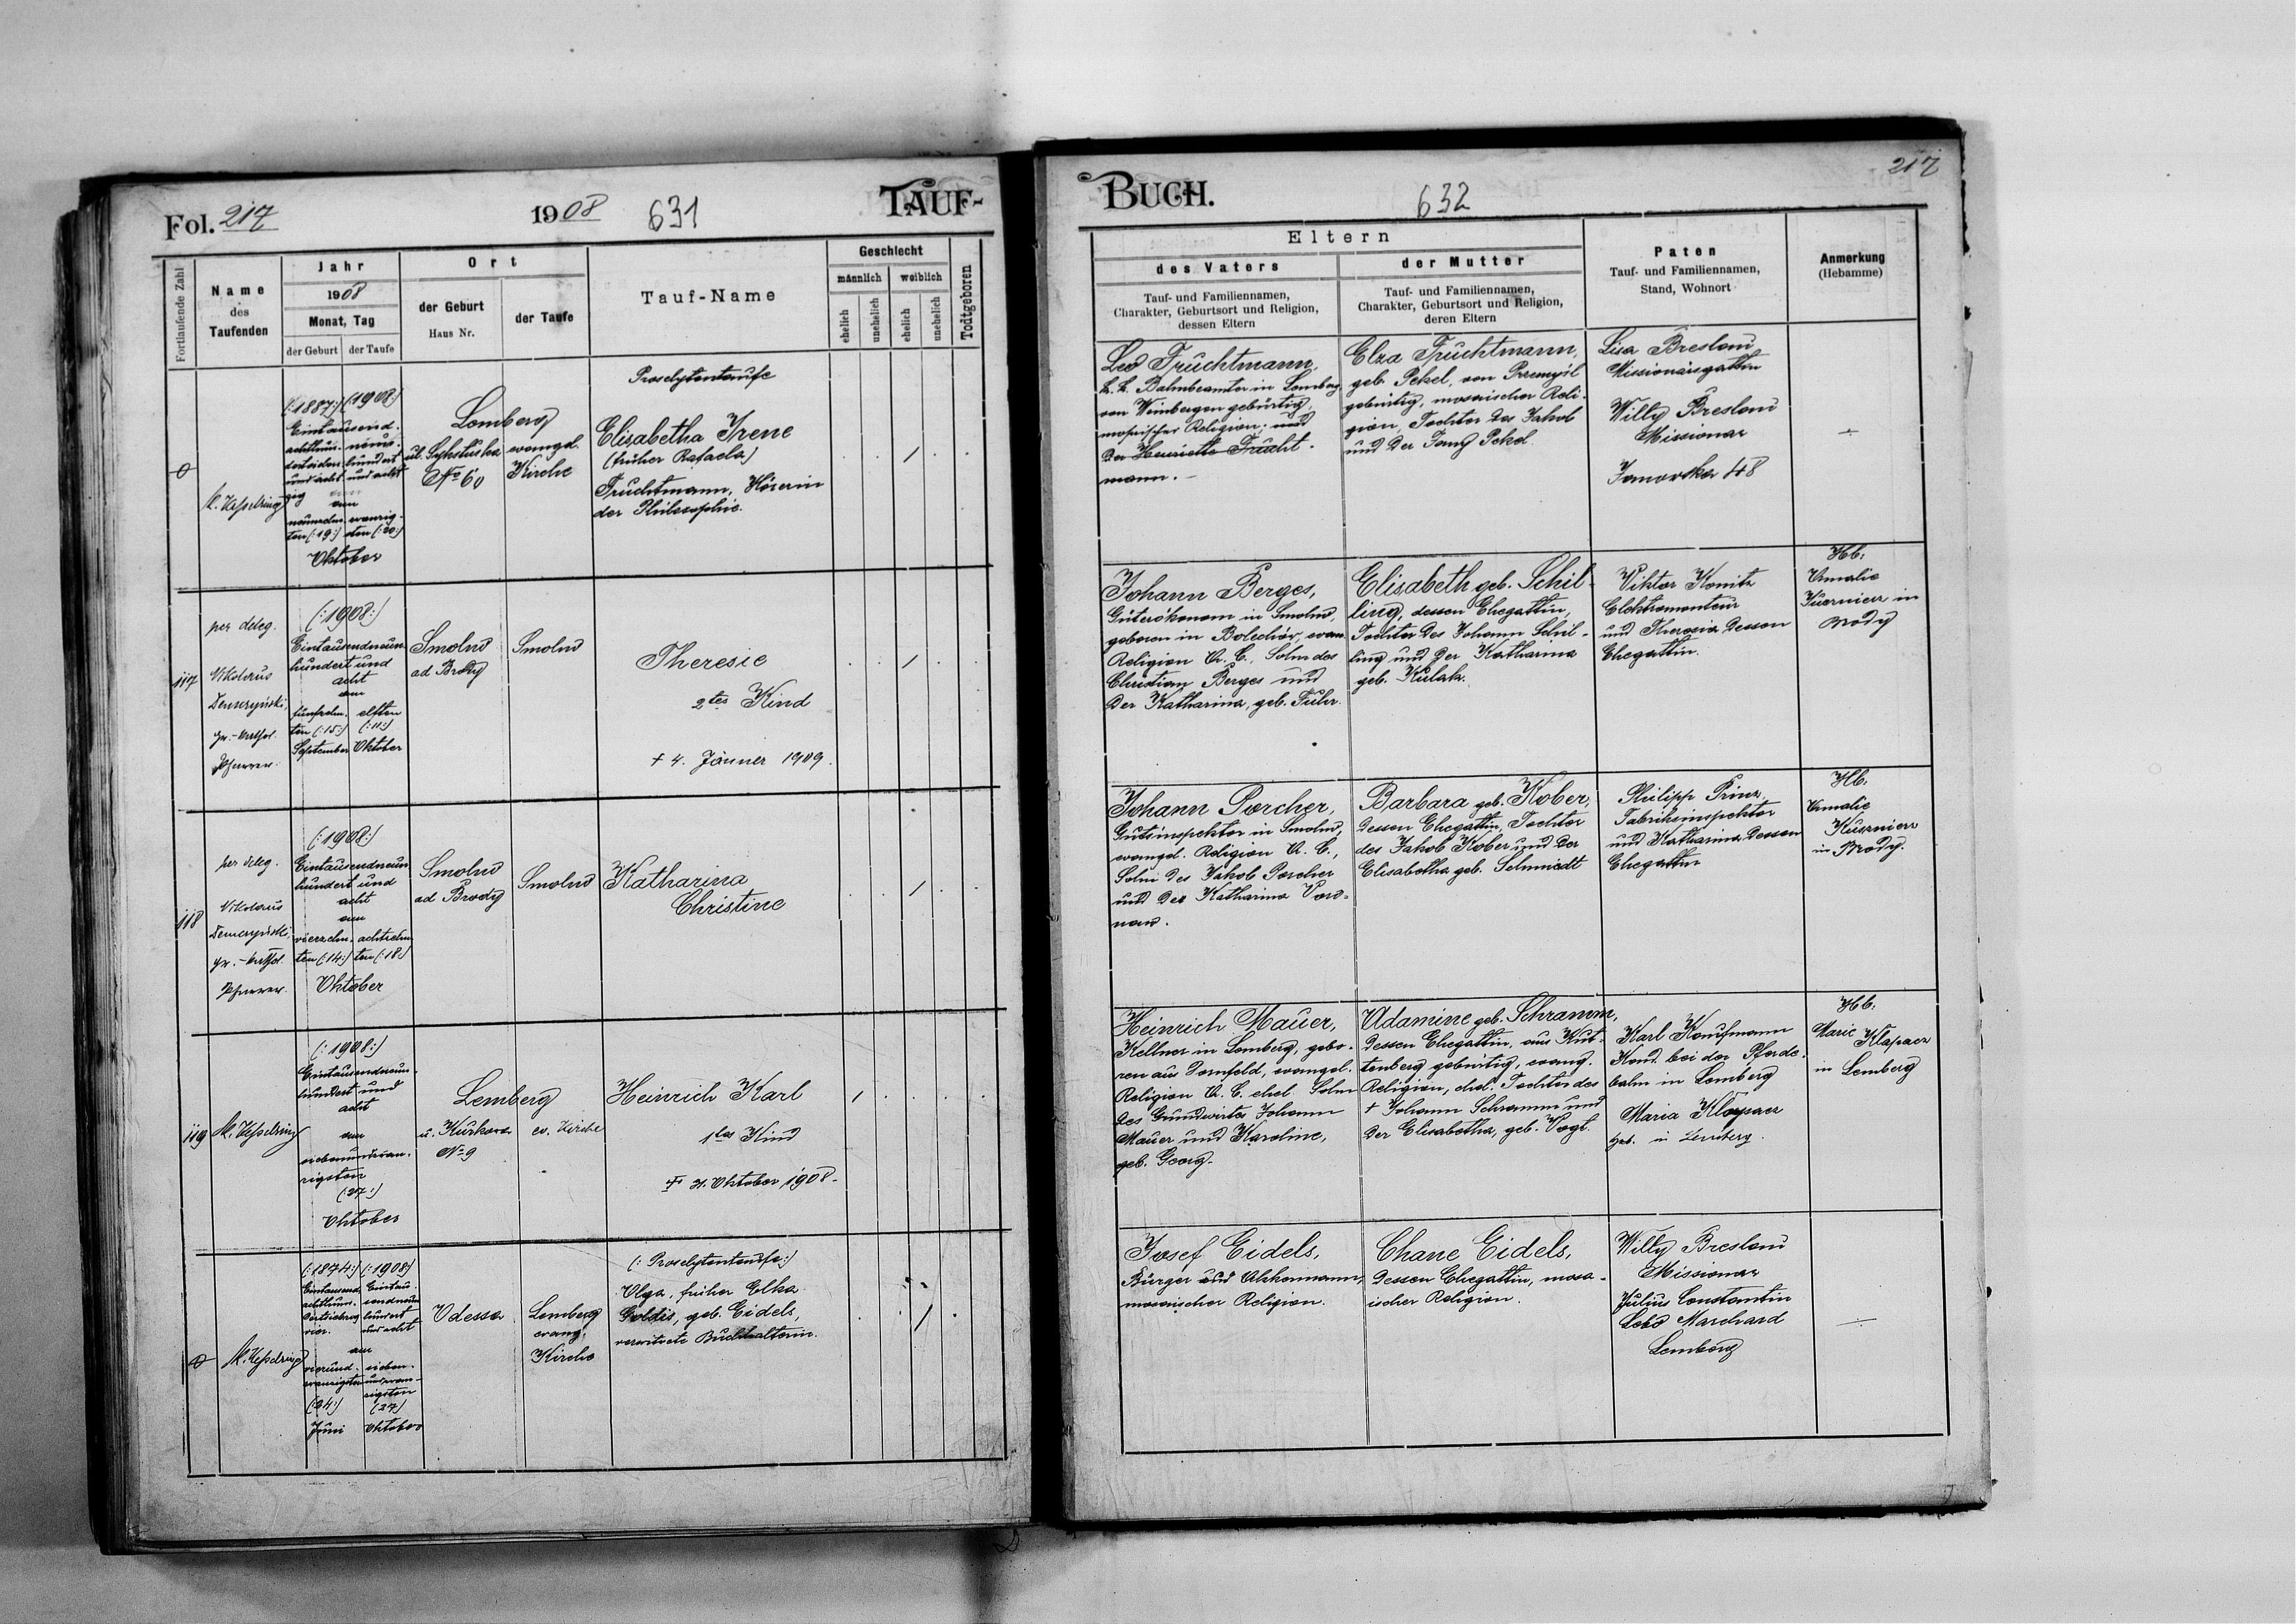 Fol. 217
1908
631
TAUF-
Fortlaufende Zahl
Name
des
Taufenden
Jahr
1908
Monat, Tag
der Geburt
der Taufe
Ort
der Geburt
Haus Nr.
der Taufe
Tauf-Name
Geschlecht
männlich
weiblich
ehelich
unehelich
ehelich
unehelich
Todtgeboren
0
M. Kesselring
(:1887:) (1908:)
Eintausend
und acht und acht
zig
am
ten (:19:) sten (:20:)
Oktober
Lemberg
ul. Sykstuska evangel.
No 60 Kirche
Proselytentaufe
Elisabetha Irene
(früher Rafaela)
Fruchtmann, Hörerin
der Philosophie.
117
per deleg.
Nikolaus
gr.-kathol.
Pfarrer.
(:1908:)
Eintausendneun
hundert und
acht
am
fünfzehn- elften
ten (:15:) (:11:)
September Oktober
Smolno
ad Brody
Smolno
Theresie
2tes Kind
+ 4. Jänner 1909.
118
per deleg.
Nikolaus
gr.-kathol.
Pfarrer.
(:1908:)
Eintausendneun
hundert und
acht
am
vierzehn- achtzehn
ten (:14:) ten (:18:)
Oktober
Smolno
ad Brody
Smolno
Katharina
Christine
119
M. Kesselring
(:1908:)
Eintausendneun-
hundert und
acht
am
siebenundzwan-
zigsten
(:27:)
Oktober
Lemberg
u. Kurkowa ev. Kirche
No 9
Heinrich Karl
1tes Kind
31. Oktober 1908.
0
M. Kesselring
(:1874:) (:1908)
Eintausend Eintau-
achthun- sendneun
dertsiebzig hundert
vier. und acht
am
vierund- sieben-
zwanzigsten undzwan-
zigsten
(:24:) (27)
Juni Oktober
Odessa
Lemberg
evang.
Kirche
(: Proselytentaufe:)
Olga, früher Elka
Goldis, geb. Eidels,
verwitwete Buchhalterin.
BUCH.
632
217
Eltern
des Vaters
Tauf- und Familiennamen,
Charakter, Geburtsort und Religion,
dessen Eltern
der Mutter
Tauf- und Familiennamen,
Charakter, Geburtsort und Religion,
deren Eltern
Paten
Tauf- und Familiennamen,
Stand, Wohnort
Anmerkung
(Hebamme)
Leo Fruchtmann,
k. k. Bahnbeamter in Lemberg,
von Weinbergen gebürtig,
mosaischer Religion; und
der Henriette Frucht-
mann.
Elza Fruchtmann,
geb. Pekel, von Przemyśl
gebürtig, mosaischer Reli-
gion, Tochter des Jakob
und der Fanny Pekel
Lisa Breslau
Missionarsgattin
Willy Breslau
Missionar
Janowska 48
Johann Berges,
Güterökonom in Smolno,
geboren in Bolechów, evan.
Religion A. C., Sohn des
Christian Berges und
der Katharina, geb. Fuhr.
Elisabeth geb. Schil-
ling, dessen Ehegattin,
Tochter des Johann Schil-
ling und der Katharina
geb. Kulak.
Viktor Konitz
Elektromonteur
und Theresia dessen
Ehegattin.
Hb:
Amalie
Kusznierz in
Brody
Johann Porcher,
Gutsinspektor in Smolno,
evangel. Religion A. C.,
Sohn des Jakob Porcher
und der Katharina
Barbara geb. Kober,
dessen Ehegattin, Tochter
des Jakob Kober und der
Elisabetha geb. Schmiedt
Philipp Prinz,
Fabriksinspektor
und Katharina dessen
Ehegattin
Hb.
Amalie
Kusznierz
in Brody.
Heinrich Mauer,
Kellner in Lemberg, gebo-
ren aus Dornfeld, evangel.
Religion A. C. ehel. Sohn
des Grundwirts Johann
Mauer und Karoline,
geb. Georg.
Adamine geb. Schramm,
dessen Ehegattin, aus Kut-
tenberg gebürtig, evang.
Religion, ehel. Tochter des
+ Johann Schramm und
der Elisabetha, geb. Vogt.
Karl Kaufmann
Kond. bei der Pferde-
bahn in Lemberg
Maria Klapacz
Heb. in Lemberg.
Hbb.
Marie Klapacz
in Lemberg
Josef Eidels,
Bürger aus Akkermann,
mosaischer Religion.
Chane Eidels,
dessen Ehegattin, mosa-
ischer Religion.
Willy Breslau
Missionar
Julius Constantin
Marchard
Lemberg